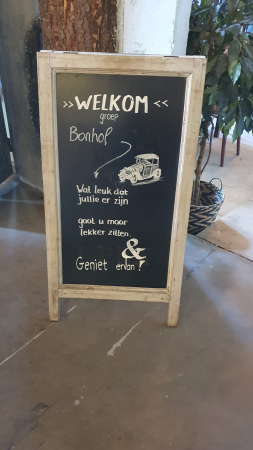 >> WELKOM <<
groep
Bonhof
Wat leuk dat
jullie er zijn
gaat u maar
lekker zitten
&
Geniet ervan!